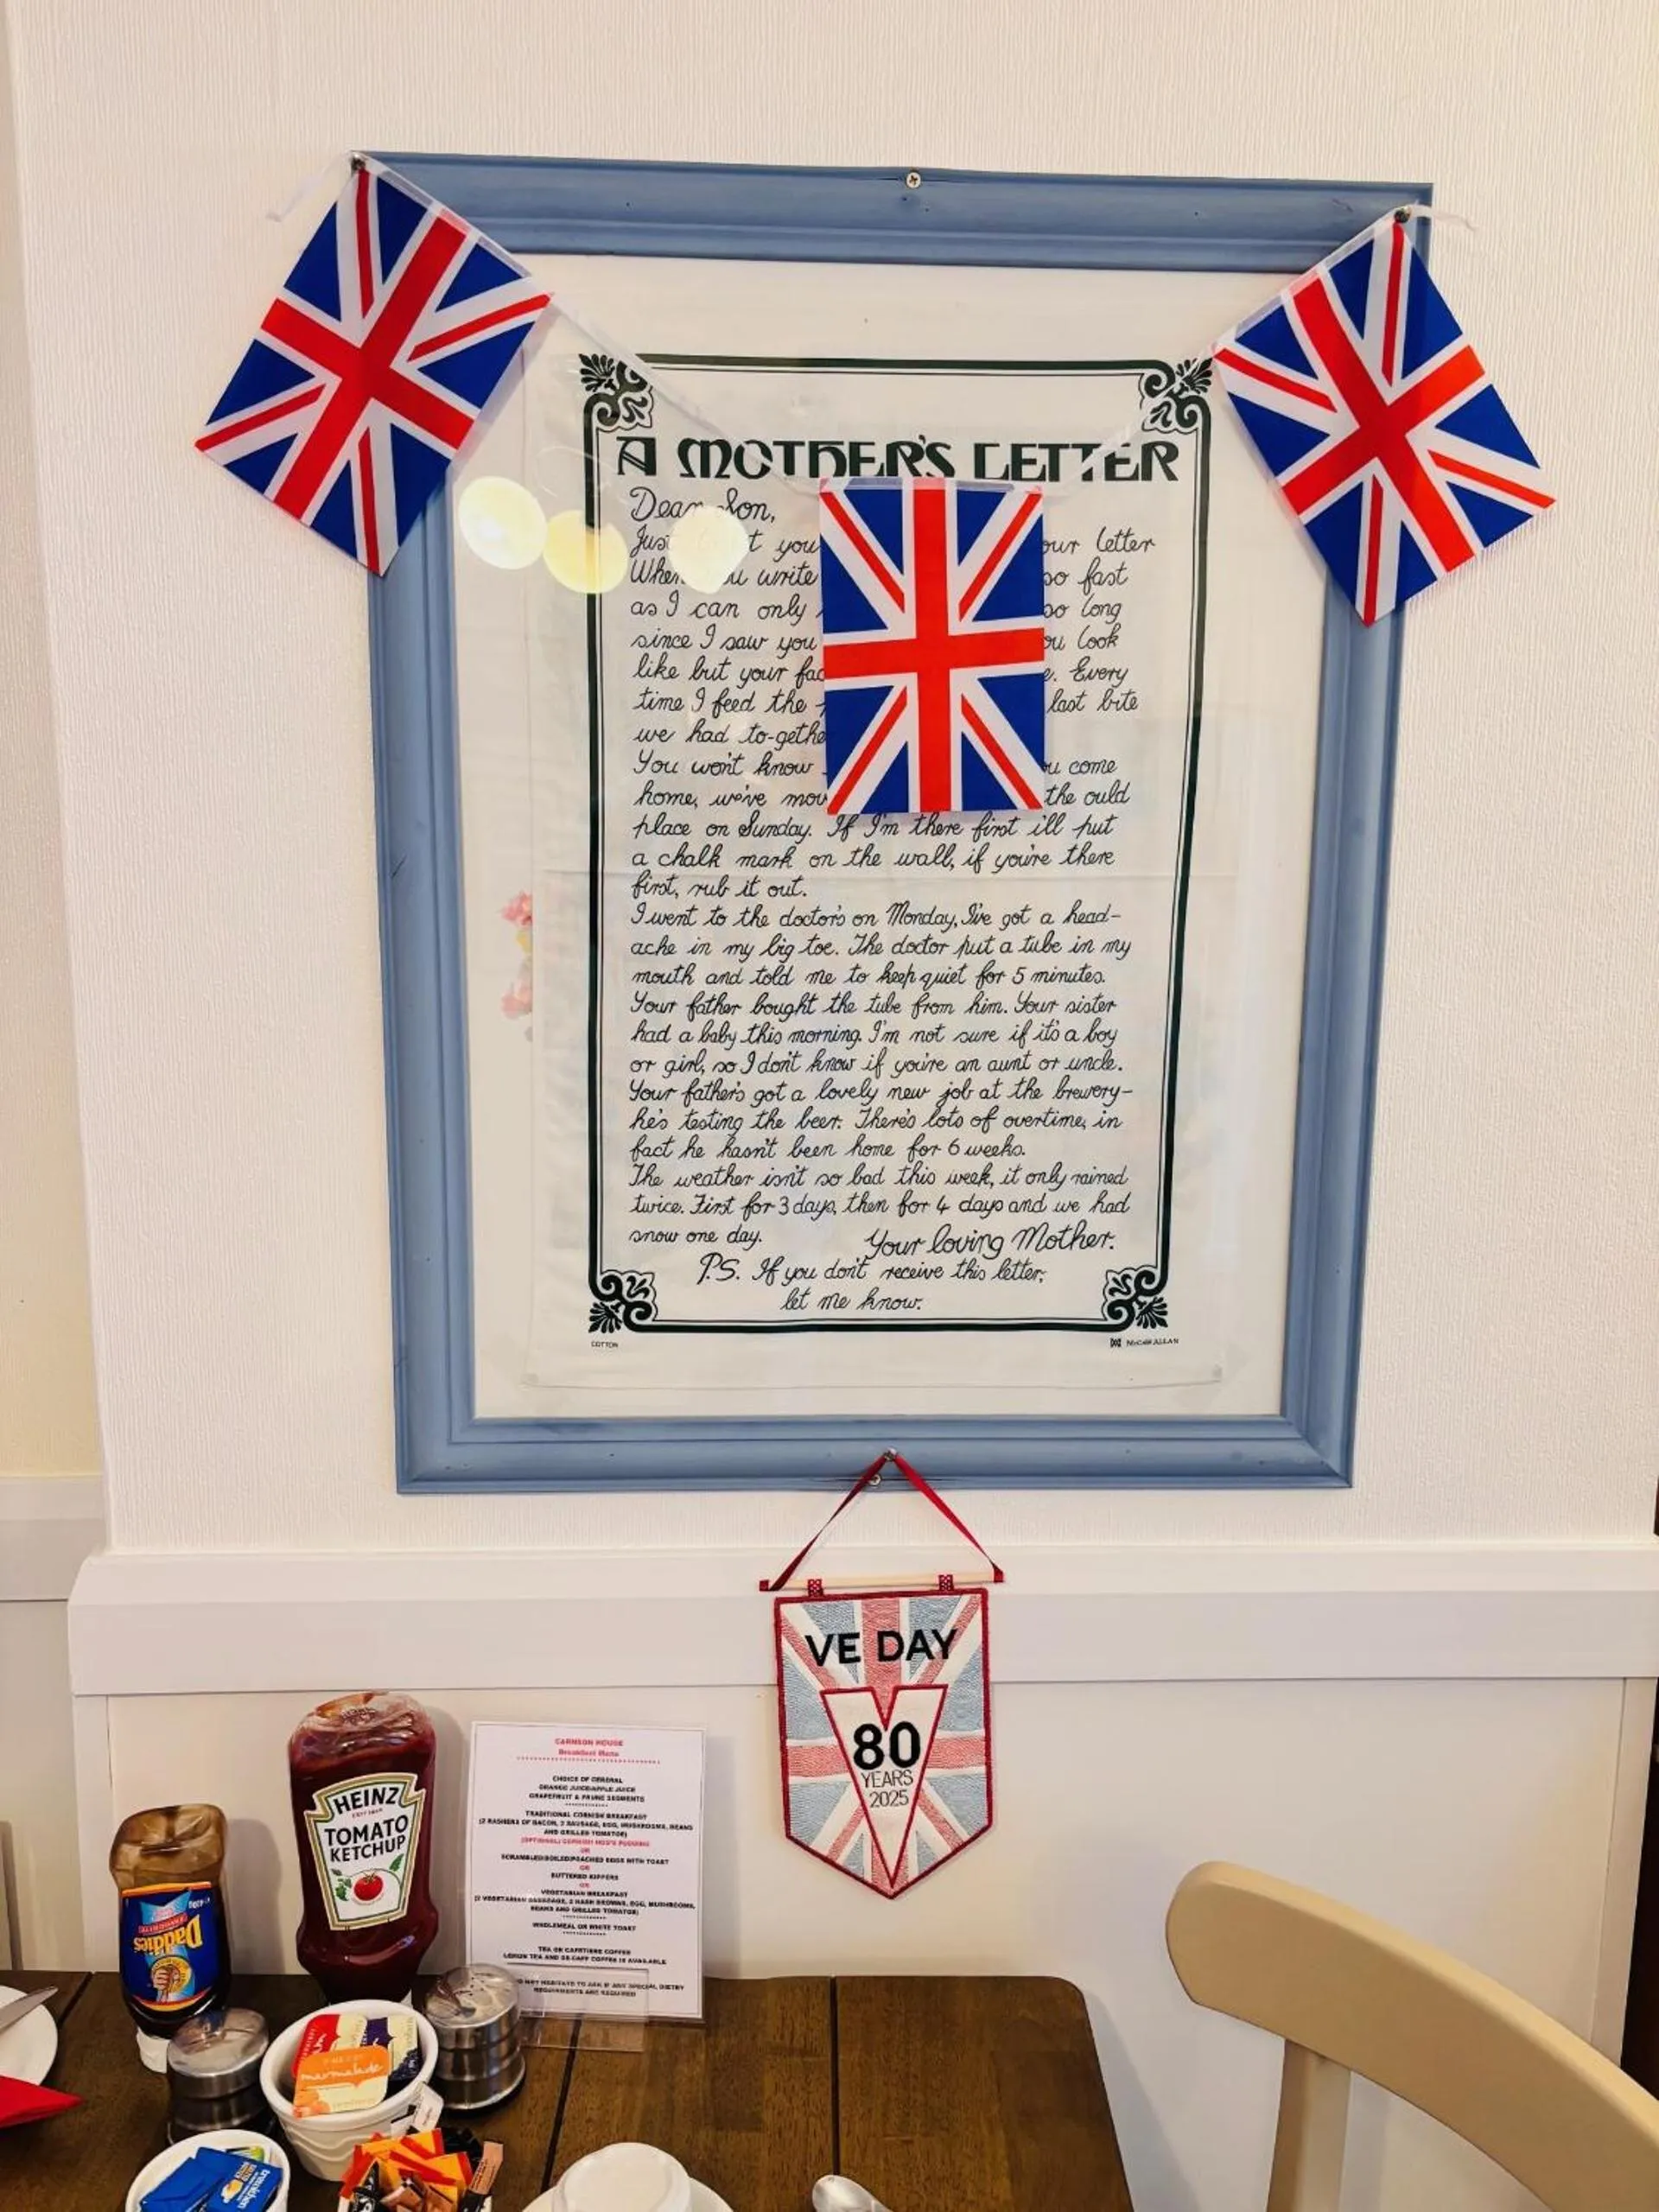 A MOTHER'S LETTER
Dear Son,
you our letter
write so fast
as I can only so long
since I saw you ou look
like but your fac e. Every
time I feed the last bite
we had to-gethe
You won't know u come
home, we've mov the ould
place on Sunday. If I'm there first i'll put
a chalk mark on the wall, if you're there
first, rub it out.
I went to the doctor's on Monday, I've got a head-
ache in my big toe. The doctor put a tube in my
mouth and told me to keep quiet for 5 minutes.
Your father bought the tube from him. Your sister
had a baby this morning. I'm not sure if it's a boy
or girl, so I don't know if you're an aunt or uncle.
Your father's got a lovely new job at the brewery-
he's testing the beer. There's lots of overtime, in
fact he hasn't been home for 6 weeks.
The weather isn't so bad this week, it only rained
twice. First for 3 days, then for 4 days and we had
snow one day. Your loving Mother.
P.S. If you don't receive this letter,
let me know.
COTTON
McCAW ALLAN
VE DAY
80
YEARS
2025
HEINZ
TOMATO
KETCHUP
Daddies
CARNSON HOUSE
Breakfast Menu
CHOICE OF CEREAL
ORANGE JUICE/APPLE JUICE
GRAPEFRUIT & PRUNE SEGMENTS
TRADITIONAL CORNISH BREAKFAST
(2 RASHERS OF BACON, 2 SAUSAGE, EGG, MUSHROOMS, BEANS
AND GRILLED TOMATOE)
(OPTIONAL) CORNISH HOG'S PUDDING
OR
SCRAMBLED/BOILED/POACHED EGGS WITH TOAST
OR
BUTTERED KIPPERS
OR
VEGETARIAN BREAKFAST
(2 VEGETARIAN SAUSAGE, 2 HASH BROWNS, EGG, MUSHROOMS,
BEANS AND GRILLED TOMATOE)
WHOLEMEAL OR WHITE TOAST
TEA OR CAFETIERE COFFEE
LEMON TEA AND DE-CAFF COFFEE IS AVAILABLE
NOT HESITATE TO ASK IF ANY SPECIAL DIETRY
REQUIREMENTS ARE REQUIRED
marmalade